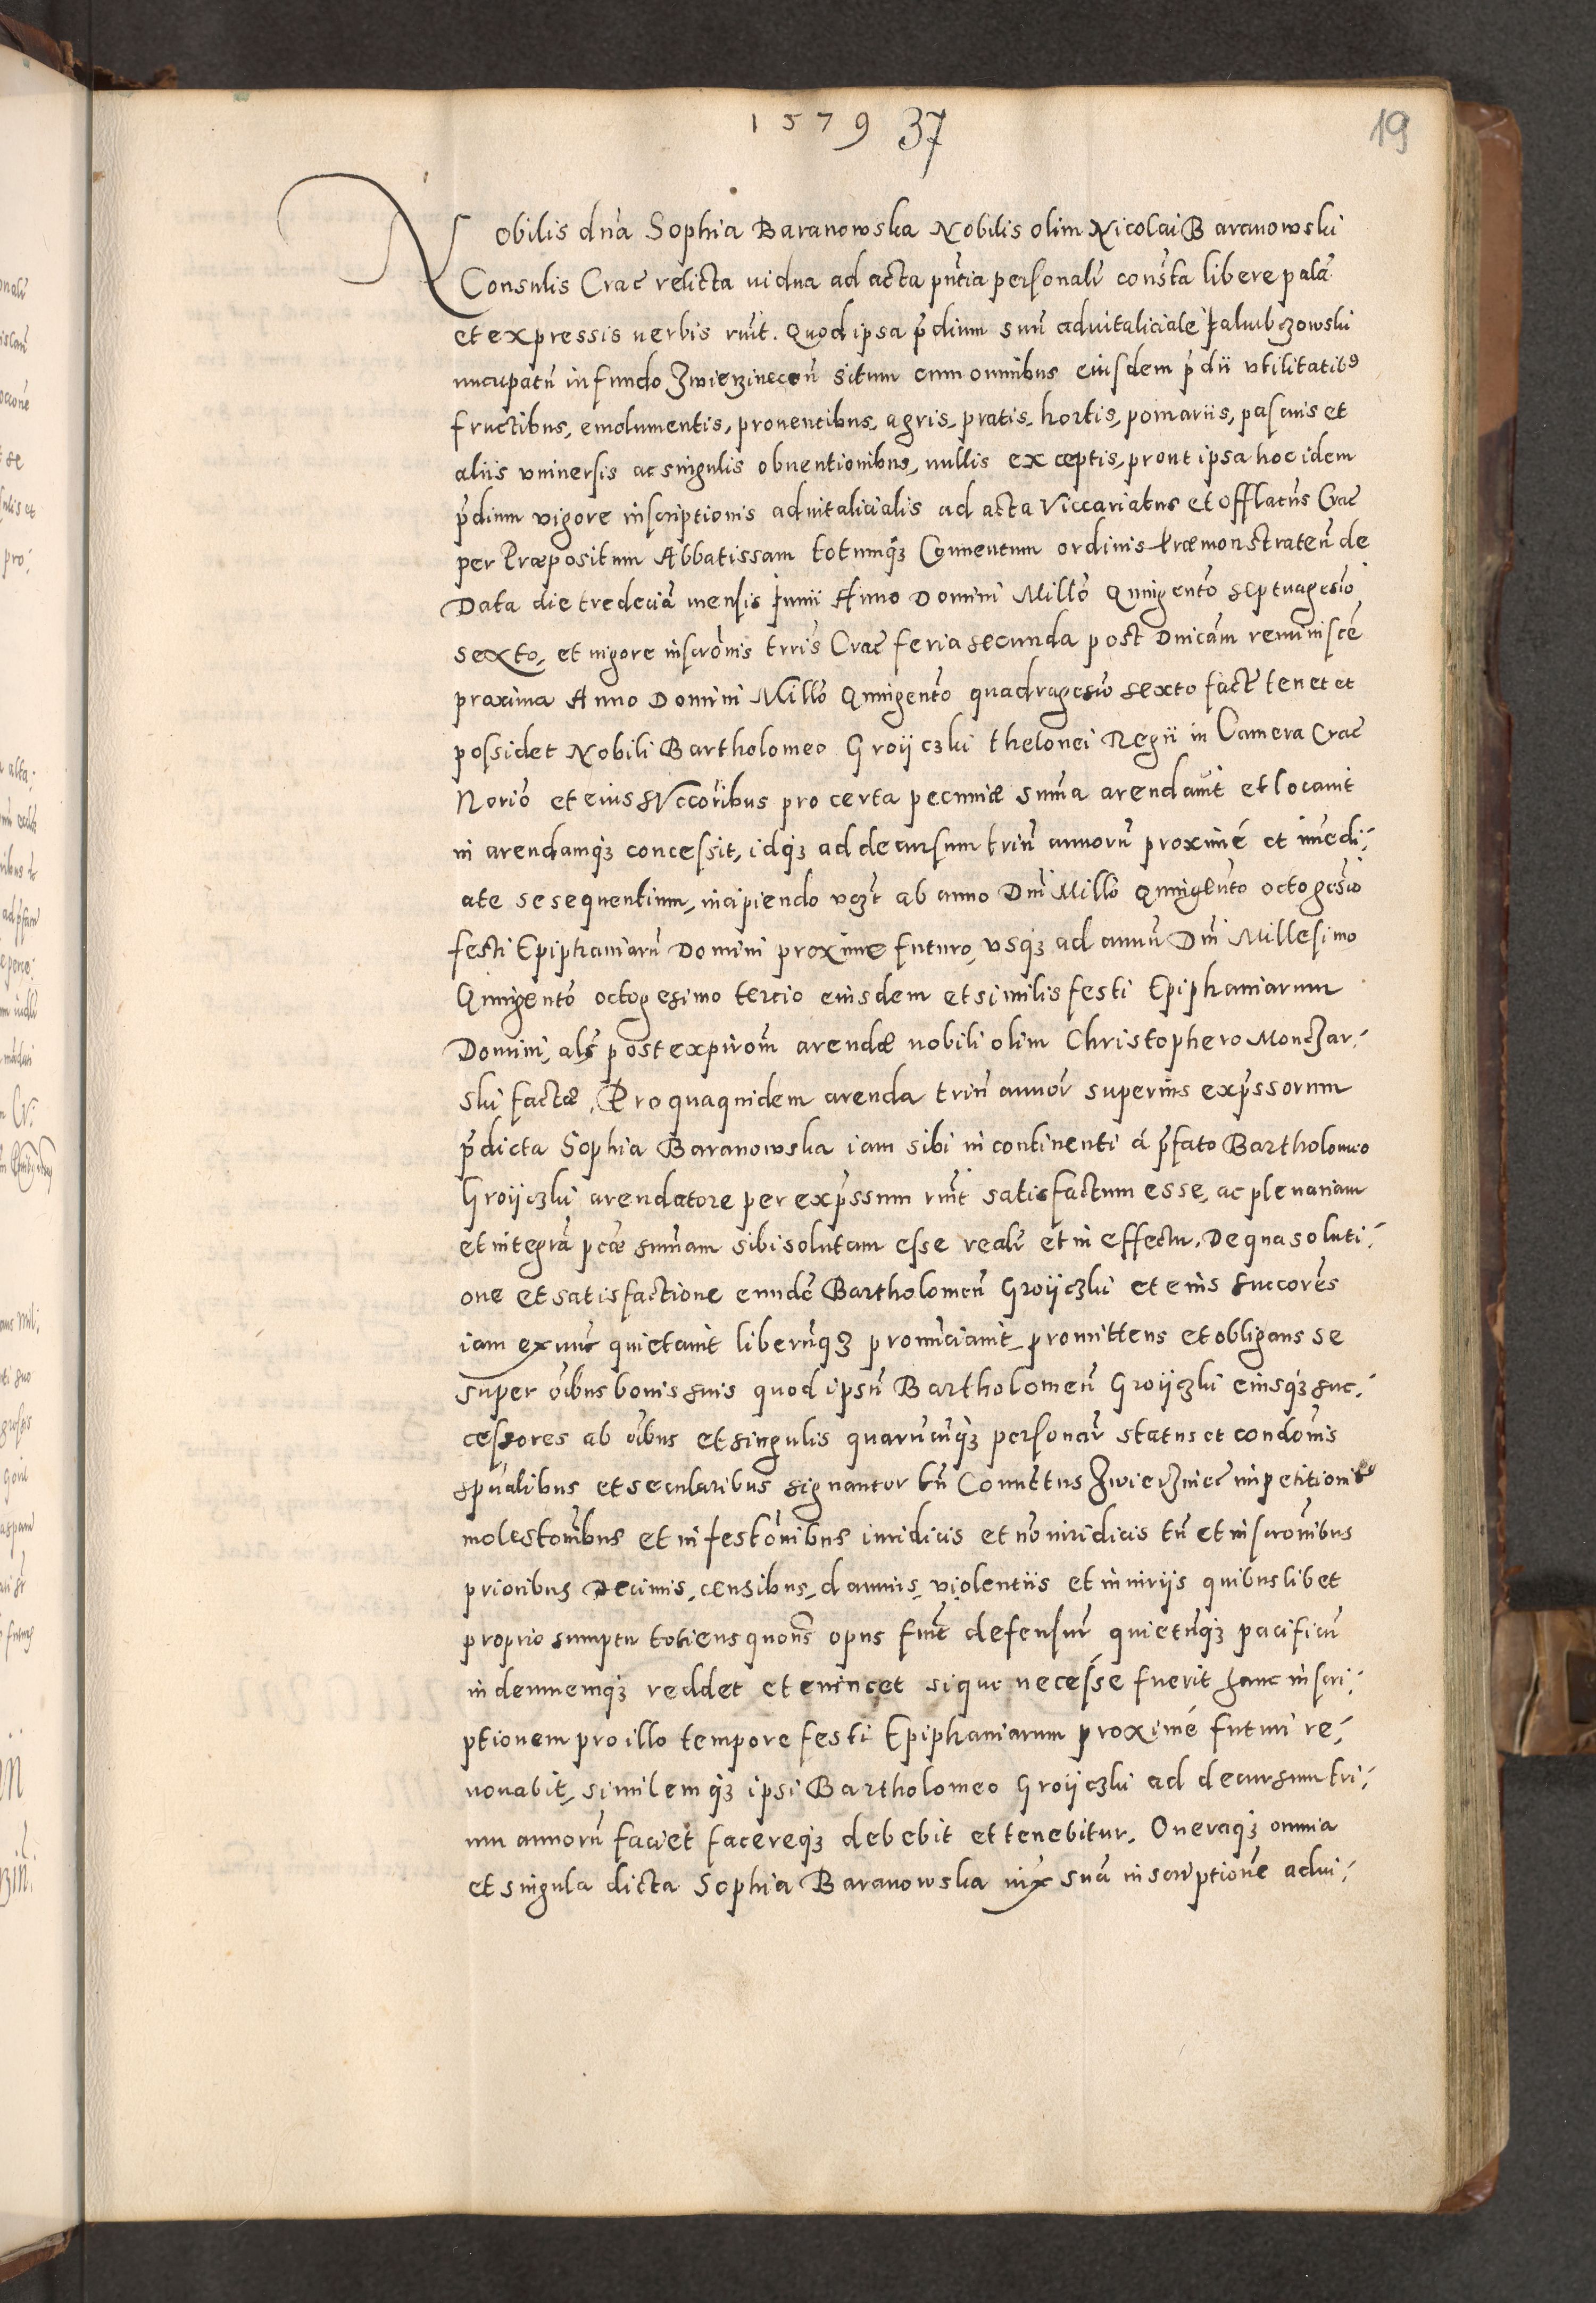 1579 37
19
Nobilis dña Sophia Baranowska Nobilis olim Nicolai Baranowski
Consulis Crac̃ relicta uidua ad acta pñtia personalr̃ consta libere palã
et expressis uerbis rñit. Quod ipsa p̃dium suũ aduitaliciale Jakubczowski
nucupatũ in fundo Zwierzinecen̄ situm cum omnibus eiusdem p̃dii vtilitatibꝰ
fructibus, emolumentis, prouentibus, agris, pratis, hortis, pomariis, pascuis et
aliis vniuersis ac singulis obuentionibus, nullis exceptis, prout ipsa hoc idem
p̃dium vigore inscriptionis aduitalicialis ad acta Viccariatus et Offlatus̃ Crac̃
per Præpositum Abbatissam totumqȝ Conuentum ordinis Præmonstraten̄ de
Data die tredeciã mensis Junii Anno Domini Millõ Quigentõ septuagesĩo
sexto, et uigore inscrõnis trris̃ Crac̃ feria secunda post Dnicam̃ reminiscẽ
proxima Anno Domini Millõ Quingentõ quadragesĩo sexto fact̃ tenet et
possidet Nobili Bartholomeo Groijczki thelonei Regii in Camera Crac̃
Noriõ et eius sVccoribus̃ pro certa pecuniæ sum̃a arendauit et locauit
in arendamqȝ concessit, idqȝ ad decursum triũ annorũ proximé et im̃edi-
ate se sequentium, incipiendo vcȝt ab anno Dnĩ Millõ Quingentõ octogesĩo
festi Epiphaniarũ Domini proxime futuro, vsqȝ ad annũ Dnĩ Millesimo
Quingentõ octogesimo tercio eiusdem et similis festi Epiphaniarum
Domini, als̃ post expirom̃ arendæ nobili olim Christophero Monczar-
ski factæ. Pro quaquidem arenda triũ annor̃ superius exp̃ssorum
p̃dicta Sophia Baranowska iam sibi in continenti á p̃fato Bartholomeo
Groijczki arendatore per exp̃ssum rñit satisfactum esse, ac plenariam
et integrã pcæ̃ sum̃am sibi solutam esse realr̃ et in effectu. De qua soluti-
one et satisfactione eundẽ Bartholomeũ Groijczki et eius succores̃
iam ex nunc quietauit liberũqȝ pronũciauit, promittens et obligans se
super oĩbus bonis suis quod ipsũ Bartholomeũ Groijczki eiusqȝ suc-
cessores ab oĩbus et singulis quarũcũqȝ personar̃ status et condonĩs
spũalibus et secularibus signantur bñ Conuẽtus Zwierzinec̃ impetitionibꝰ
molestonĩbus et infestonĩbus iuridicis et nõ iuridicis tñ et inscronĩbus
prioribus decimis, censibus, damnis, violentiis et iniuriis quibuslibet
proprio sumptu totiens quotis̃ opus fuẽt defensur̃ quietũqȝ pacificũ
indemnemqȝ reddet et euincet siqȝ necesse fuerit hanc inscri-
ptionem pro illo tempore festi Epiphaniarum proximé futuri re-
nouabit, similemqȝ ipsi Bartholomeo Groijczki ad decursum tri-
um annorũ faciet facereqȝ debebit et tenebitur. Oneraqȝ omnia
et singula dicta Sophia Baranowska iux̃ suã inscriptionẽ adui-